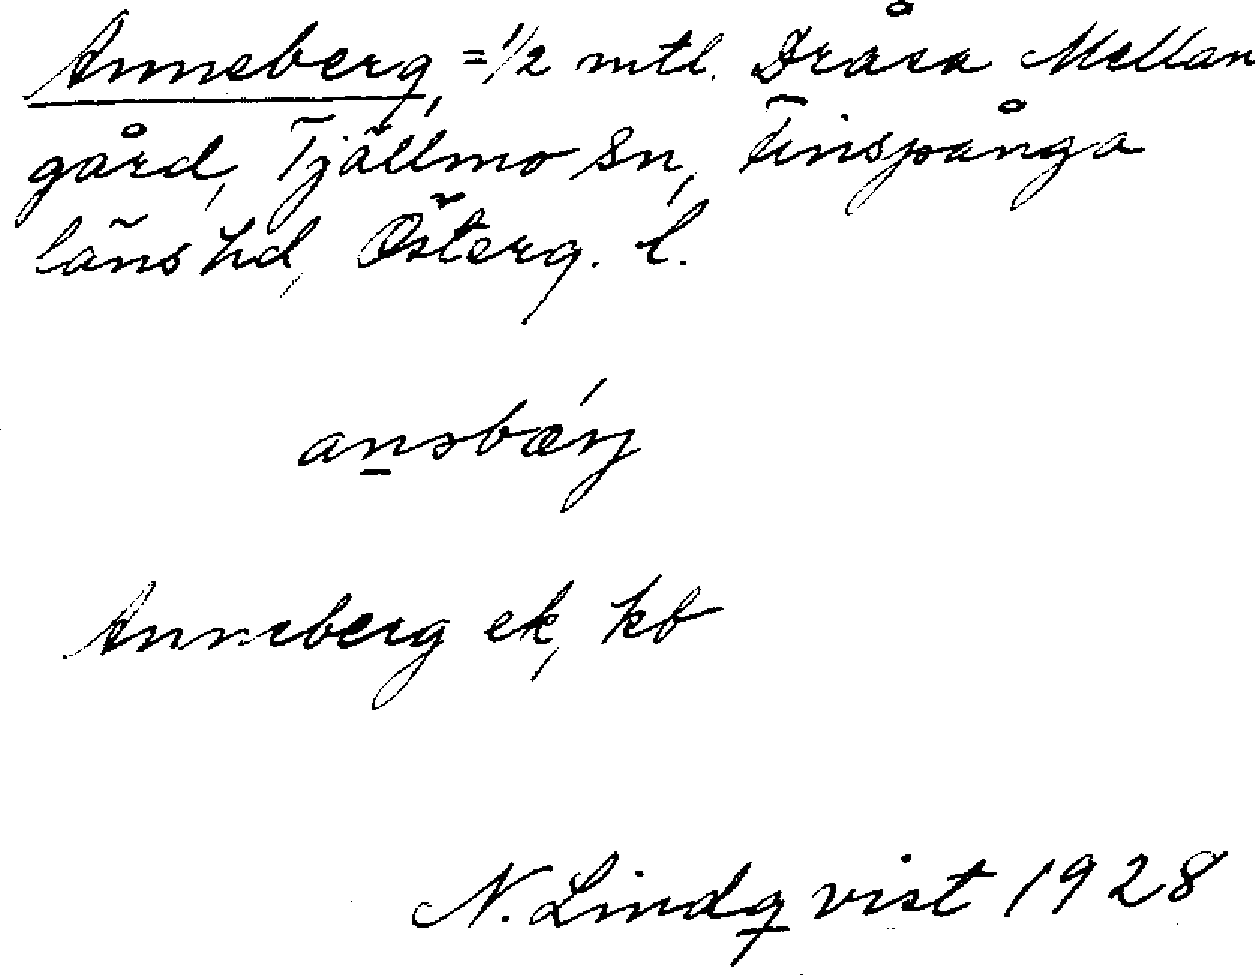 Anneberg, = 1/2 mtl. Dråsa Mellan
gård, Tjällmo Sn, Finspånga
läns hd, Österg. l.
Anneberg ek, kb
N. Lindqvist 1928